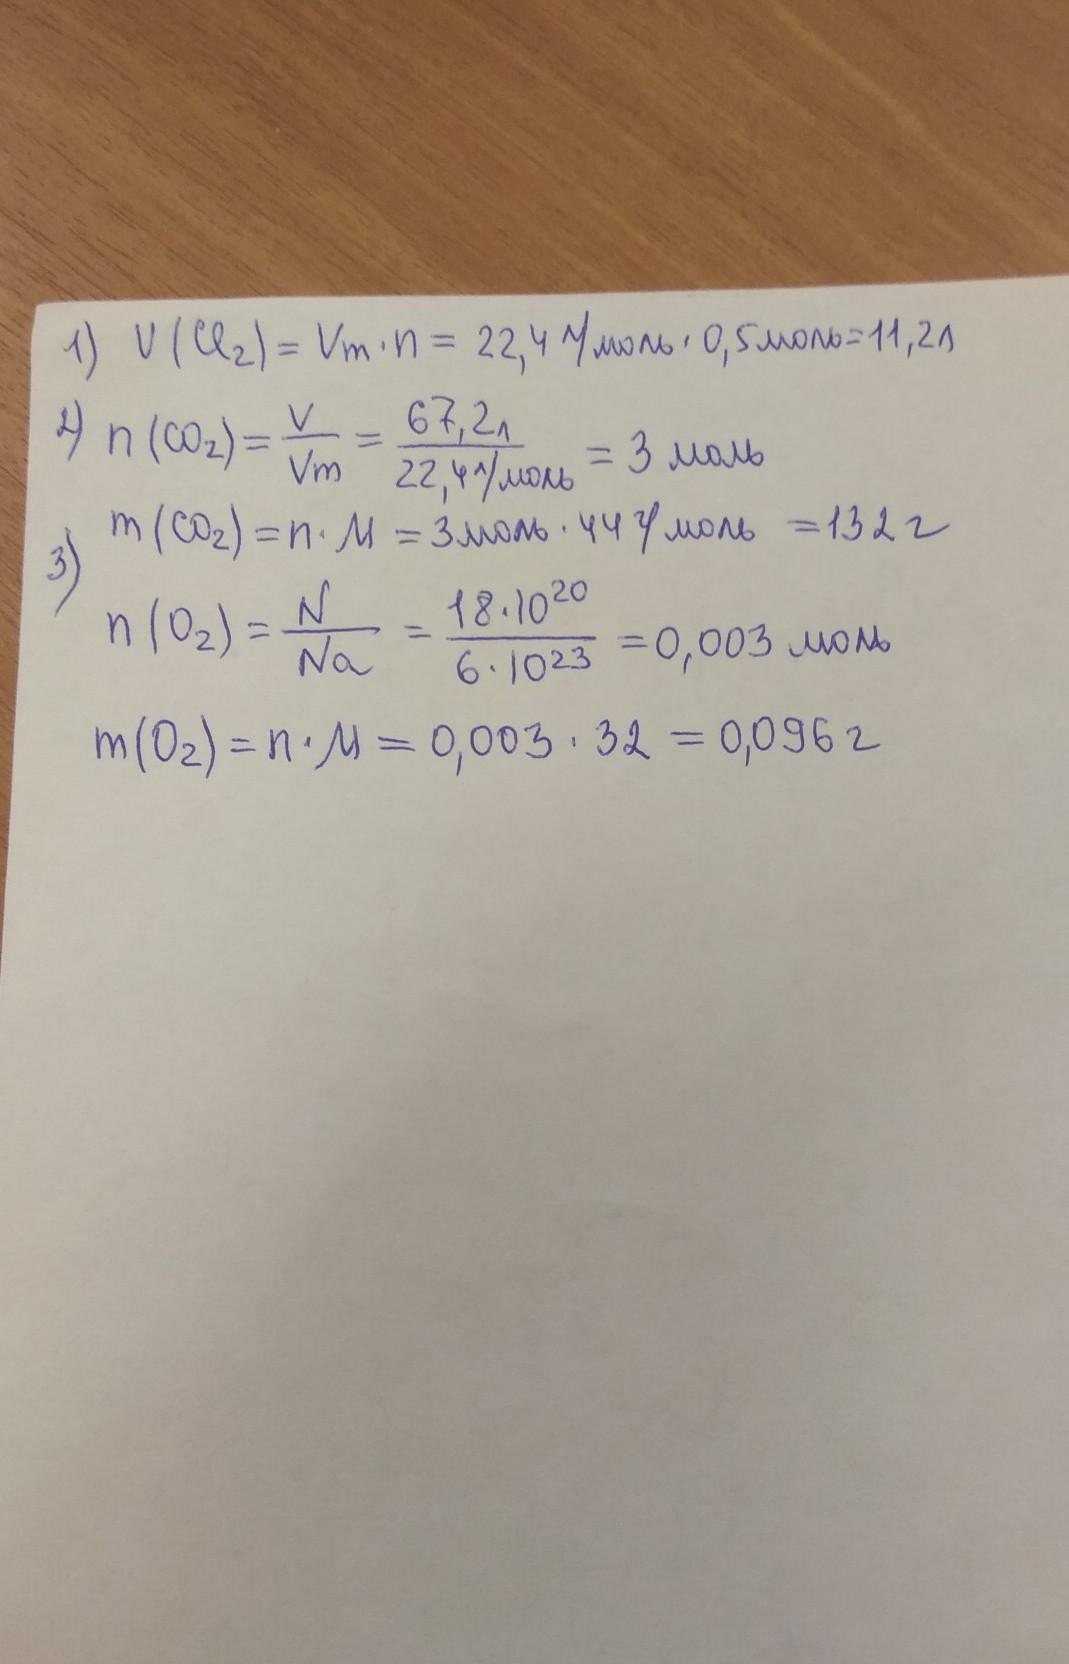 1) V(Cl₂) = Vm · n = 22,4 л/моль · 0,5 моль = 11,2 л
2) n(CO₂) = V/Vm = 67,2 л / 22,4 л/моль = 3 моль
m(CO₂) = n · M = 3 моль · 44 г/моль = 132 г
3) n(O₂) = N/Na = 18·10²⁰ / 6·10²³ = 0,003 моль
m(O₂) = n · M = 0,003 · 32 = 0,096 г